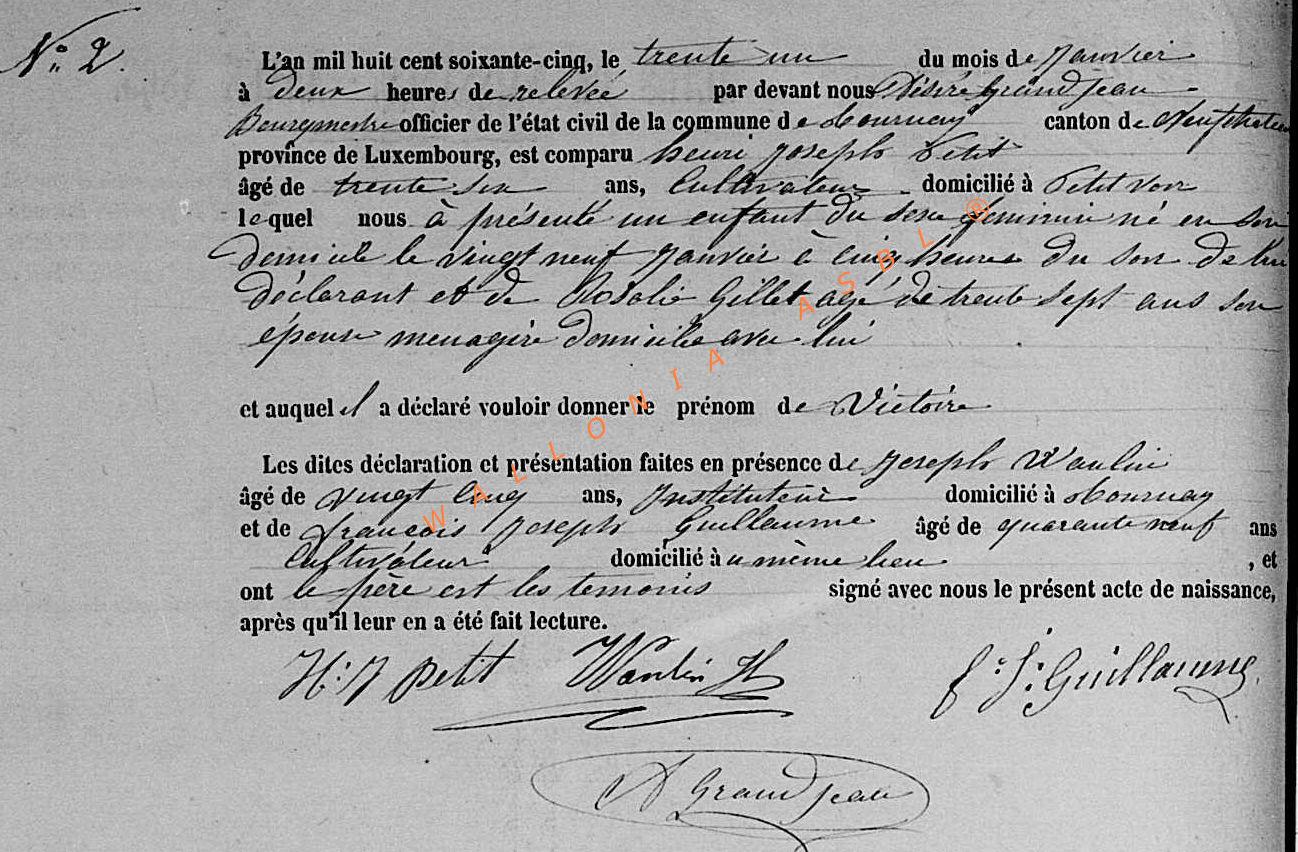 N° 2.
L'an mil huit cent soixante-cinq, le trente un du mois de Janvier
à deux heures de relevée par devant nous Désiré Grandjean
Bourgmestre officier de l'état civil de la commune de Tournay canton de Neufchateau
province de Luxembourg, est comparu henri Joseph Petit
âgé de trente six ans, Cultivateur domicilié à Petit voir
lequel nous à présenté un enfant du sexe feminin né en son
domicile le vingt neuf Janvier à cinq heures du soir de lui
déclarant et de Rosalie Gillet agé de trente sept ans son
épouse menagère domicilie avec lui
et auquel il a déclaré vouloir donner le prénom de Victoire
Les dites déclaration et présentation faites en présence de Joseph Wanlin
âgé de vingt cinq ans, Instituteur domicilié à Tournay
et de françois Joseph Guillaume âgé de quarante neuf ans
Cultivateur domicilié à u même lieu , et
ont le père est les temoins signé avec nous le présent acte de naissance,
après qu'il leur en a été fait lecture.
H. J Petit Wanlin F. J. Guillaume
D Grandjean
WALLONIA ASBL ®